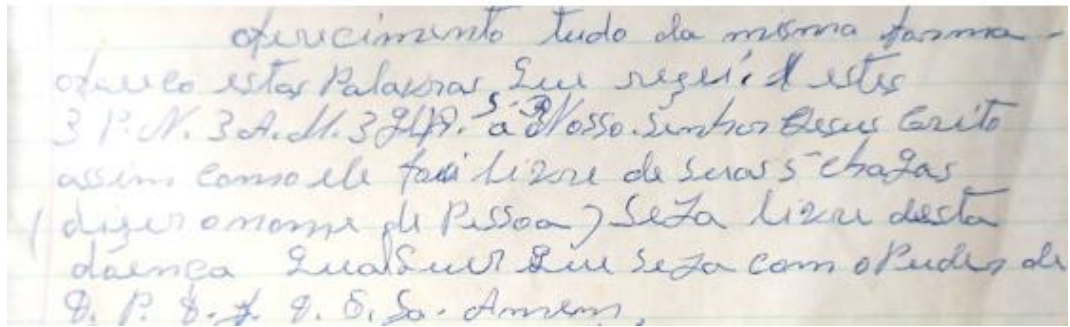 oferecimento tudo da mesma forma -
ofereco estas Palavras que rezei. e estes
3 P. N. 3 A. M. 3 GLP. a Nosso. Senhor Jesus Cristo
assim como ele foi livre de suas 5 chagas
(dizer o nome de Pessoa) Seja livre desta
doença qualquer que seja com o Puder de
D. P. D. F. D. E. So. Amem,